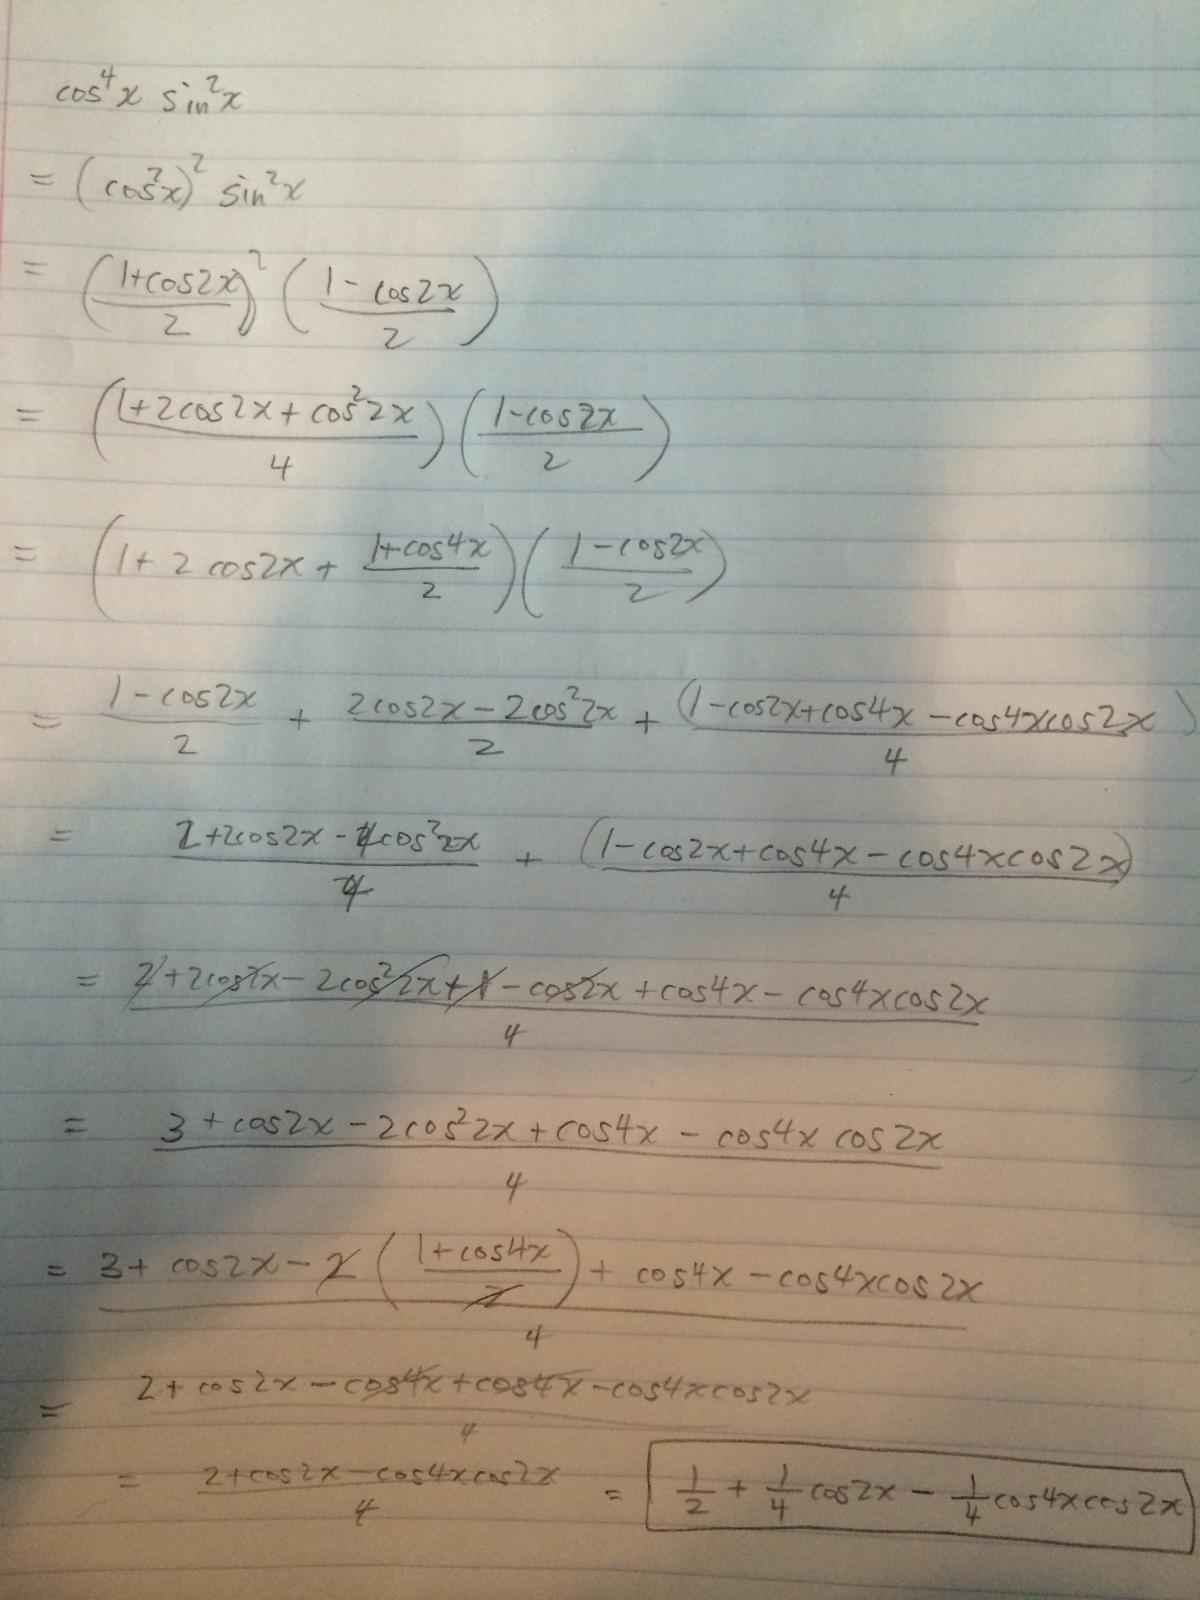 cos⁴x sin²x
= (cos²x)² sin²x
= ((1+cos2x)/2)² ((1-cos2x)/2)
= ((1+2cos2x+cos²2x)/4) ((1-cos2x)/2)
= (1+2cos2x+(1+cos4x)/2) ((1-cos2x)/2)
= (1-cos2x)/2 + (2cos2x-2cos²2x)/2 + (1-cos2x+cos4x-cos4xcos2x)/4
= (2+2cos2x-4cos²2x)/4 + (1-cos2x+cos4x-cos4xcos2x)/4
= (2+2cos2x-2cos²2x+1-cos2x+cos4x-cos4xcos2x)/4
= (3+cos2x-2cos²2x+cos4x-cos4x cos2x)/4
= (3+cos2x-2((1+cos4x)/2)+cos4x-cos4xcos2x)/4
= (2+cos2x-cos4x+cos4x-cos4xcos2x)/4
= (2+cos2x-cos4xcos2x)/4 = 1/2 + 1/4 cos2x - 1/4 cos4xcos2x